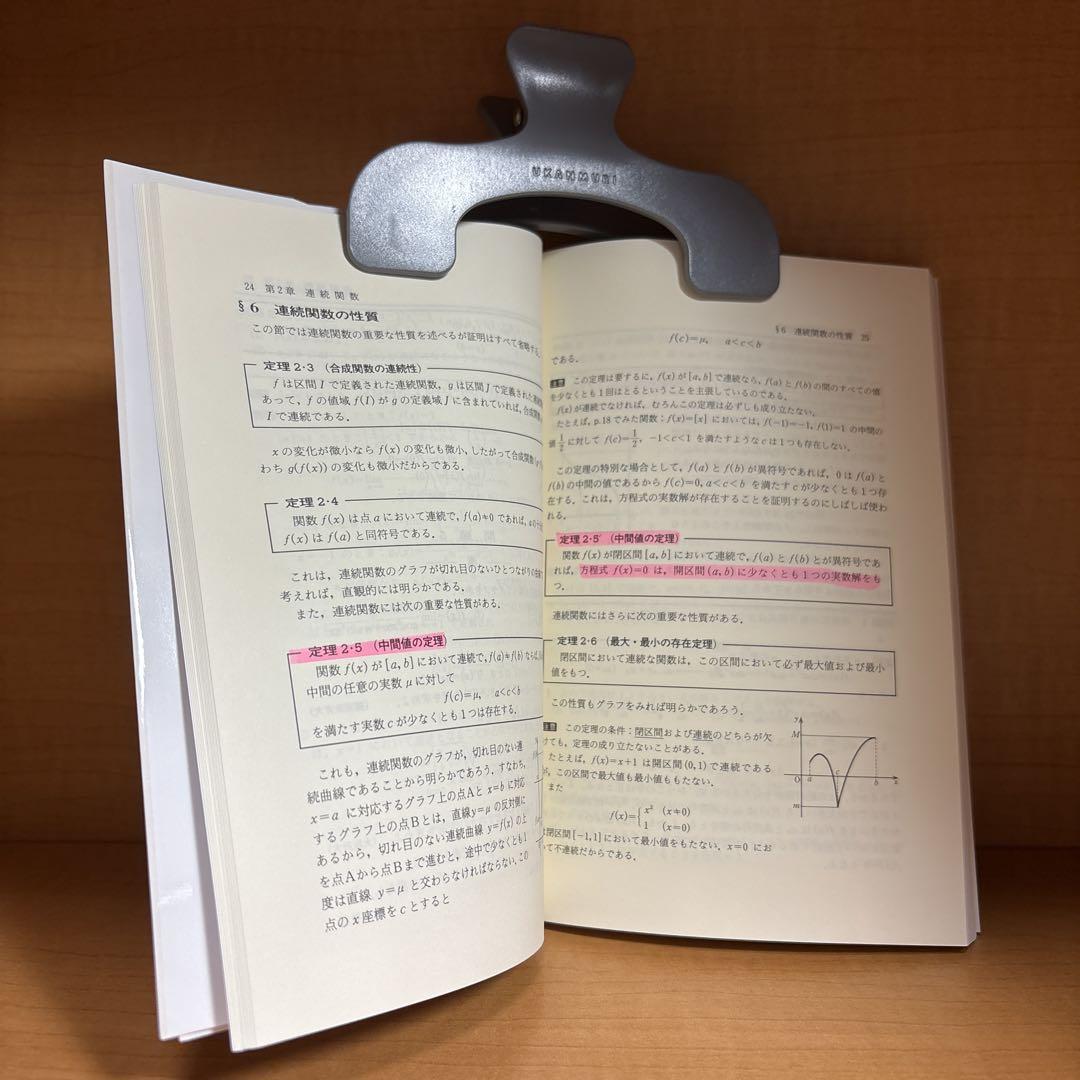 UKANMURI
24 第2章 連続関数
§6 連続関数の性質
この節では連続関数の重要な性質を述べるが証明はすべて省略する.
定理2・3 (合成関数の連続性)
f は区間 I で定義された連続関数, g は区間 J で定義された
あって, f の値域 f(I) が g の定義域 J に含まれていれば, 合成関数
I で連続である.
x の変化が微小なら f(x) の変化も微小, したがって合成関数
わち g(f(x)) の変化も微小だからである.
定理2・4
関数 f(x) は点 a において連続で, f(a)≠0 であれば, a の
f(x) は f(a) と同符号である.
これは, 連続関数のグラフが切れ目のないひとつながりの
考えれば, 直観的には明らかである.
また, 連続関数には次の重要な性質がある.
定理2・5 (中間値の定理)
関数 f(x) が [a, b] において連続で, f(a)≠f(b) ならば,
中間の任意の実数 μ に対して
f(c)=μ, a<c<b
を満たす実数 c が少なくとも1つは存在する.
これも, 連続関数のグラフが, 切れ目のない連
続曲線であることから明らかであろう. すなわち,
x=a に対応するグラフ上の点Aと x=b に対応
するグラフ上の点Bとは, 直線 y=μ の反対側に
あるから, 切れ目のない連続曲線 y=f(x) の上
を点Aから点Bまで進むと, 途中で少なくとも1
度は直線 y=μ と交わらなければならない. この
点の x 座標を c とすると
§6 連続関数の性質 25
f(c)=μ, a<c<b
である.
注意 この定理は要するに, f(x) が [a, b] で連続なら, f(a) と f(b) の間のすべての値
を少なくとも1回はとるということを主張しているのである.
f(x) が連続でなければ, むろんこの定理は必ずしも成り立たない.
たとえば, p.18 でみた関数: f(x)=[x] においては, f(-1)=-1, f(1)=1 の中間の
値 1/2 に対して f(c)=1/2, -1<c<1 を満たすような c は1つも存在しない.
この定理の特別な場合として, f(a) と f(b) が異符号であれば, 0 は f(a) と
f(b) の中間の値であるから f(c)=0, a<c<b を満たす c が少なくとも1つ存
在する. これは, 方程式の実数解が存在することを証明するのにしばしば使わ
れる.
定理2・5′ (中間値の定理)
関数 f(x) が閉区間 [a, b] において連続で, f(a) と f(b) とが異符号であ
れば, 方程式 f(x)=0 は, 開区間 (a, b) に少なくとも1つの実数解をも
つ.
連続関数にはさらに次の重要な性質がある.
定理2・6 (最大・最小の存在定理)
閉区間において連続な関数は, この区間において必ず最大値および最小
値をもつ.
この性質もグラフをみれば明らかであろう.
注意 この定理の条件: 閉区間および連続のどちらが欠
けても, 定理の成り立たないことがある.
たとえば, f(x)=x+1 は開区間 (0, 1) で連続である
が, この区間で最大値も最小値ももたない.
また
f(x)={ x² (x≠0)
1 (x=0)
は閉区間 [-1, 1] において最小値をもたない. x=0 にお
いて不連続だからである.
y
M
O a c b x
m